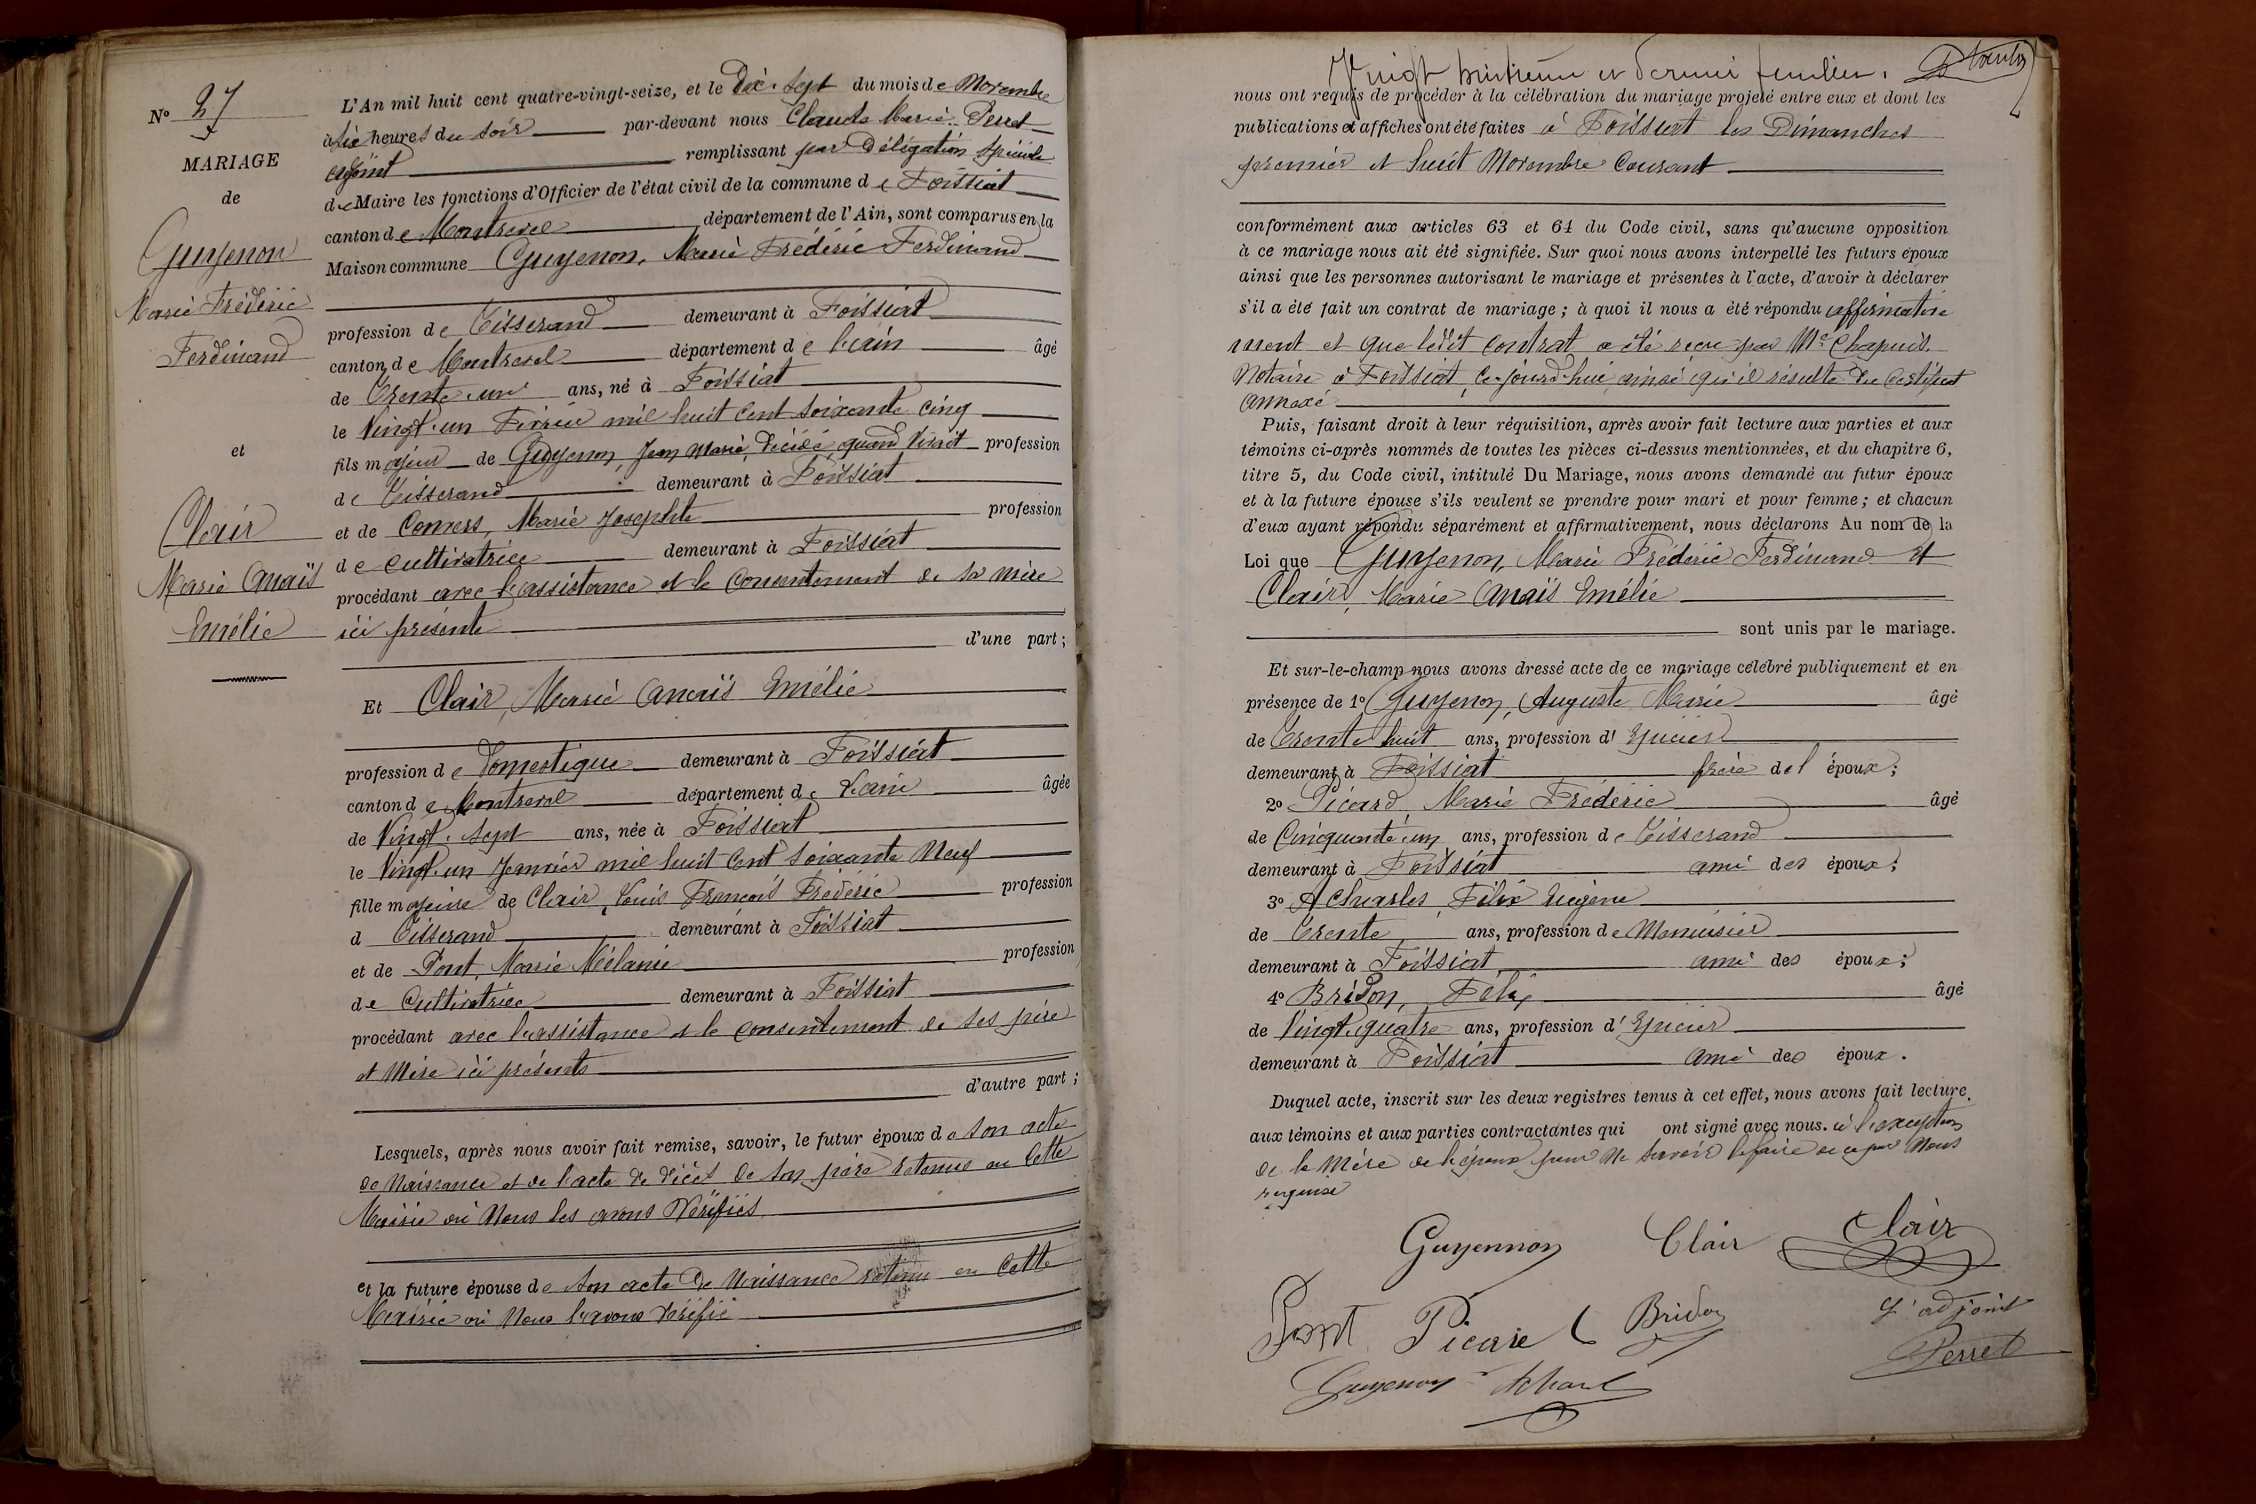 N° 27
MARIAGE
de
Guyenon
Marie Frédéric
Ferdinand
et
Clair
Marie Anaïs
Emélie
L'An mil huit cent quatre-vingt-seize, et le Dix-Sept du mois de Novembre
à six heures du soir par-devant nous Claude Marie Perret
adjoint remplissant par Délégation spéciale
de Maire les fonctions d'Officier de l'état civil de la commune de Foissiat
canton de Montrevel département de l'Ain, sont comparus en la
Maison commune Guyenon, Marie Frédéric Ferdinand
profession de Tisserand demeurant à Foissiat
canton de Montrevel département de l'ain âgé
de Trente-un ans, né à Foissiat
le Vingt-un Février mil huit Cent Soixante Cinq
fils majeur de Guyenon, Jean Marie, Décédé, quand vivait profession
de Tisserand demeurant à Foissiat
et de Convers, Marie Josephte profession
de cultivatrice demeurant à Foissiat
procédant avec l'assistance et le Consentement de sa mère
ici présente
d'une part;
Et Clair, Marie Anaïs Emélie
profession de Domestique demeurant à Foissiat
canton de Montrevel département de l'ain âgée
de Vingt-Sept ans, née à Foissiat
le Vingt-un Janvier mil huit Cent Soixante Neuf
fille majeure de Clair, Louis François Frédéric profession
d Tisserand demeurant à Foissiat
et de Pont, Marie Mélanie profession
de Cultivatrice demeurant à Foissiat
procédant avec l'assistance et le Consentement de ses père
et Mère ici présents
d'autre part;
Lesquels, après nous avoir fait remise, savoir, le futur époux de son acte
de Naissance et de l'acte de décès de son père retenus en Cette
Mairie où Nous les avons Vérifiés
et la future épouse de son acte De Naissance retenu en Cette
Mairie où Nous l'avons Vérifié
Vingt huitième et dernier feuillet.
nous ont requis de procéder à la célébration du mariage projeté entre eux et dont les
publications et affiches ont été faites à Foissiat les Dimanches
premier et huit Novembre Courant
conformément aux articles 63 et 64 du Code civil, sans qu'aucune opposition
à ce mariage nous ait été signifiée. Sur quoi nous avons interpellé les futurs époux
ainsi que les personnes autorisant le mariage et présentes à l'acte, d'avoir à déclarer
s'il a été fait un contrat de mariage; à quoi il nous a été répondu affirmative
ment et que ledit Contrat a été reçu par Me Chapuis
Notaire à Foissiat, Ce-jourd'hui ainsi qu'il résulte du Certificat
Annexé
Puis, faisant droit à leur réquisition, après avoir fait lecture aux parties et aux
témoins ci-après nommés de toutes les pièces ci-dessus mentionnées, et du chapitre 6,
titre 5, du Code civil, intitulé Du Mariage, nous avons demandé au futur époux
et à la future épouse s'ils veulent se prendre pour mari et pour femme; et chacun
d'eux ayant répondu séparément et affirmativement, nous déclarons Au nom de la
Loi que Guyenon, Marie Frédéric Ferdinand Et
Clair, Marie Anaïs Emélie
sont unis par le mariage.
Et sur-le-champ nous avons dressé acte de ce mariage célébré publiquement et en
présence de 1° Guyenon, Auguste Marie âgé
de Trente huit ans, profession d' Epicier
demeurant à Foissiat frère del époux;
2° Picard, Marie Frédéric âgé
de Cinquante-un ans, profession de Tisserand
demeurant à Foissiat ami des époux;
3° Acharles, Félix Eugène
de Trente ans, profession de Menuisier
demeurant à Foissiat ami des époux;
4° Bridon, Félix âgé
de Vingt-quatre ans, profession d' Epicier
demeurant à Foissiat Ami des époux.
Duquel acte, inscrit sur les deux registres tenus à cet effet, nous avons fait lecture
aux témoins et aux parties contractantes qui ont signé avec nous. à l'exception
de la Mère de l'époux pour ne Savoir le faire de ce par Nous
requise
Guyennon Clair Clair
Pont Picard Bridon
L'adjoint
Guyenon Acharl
Perret